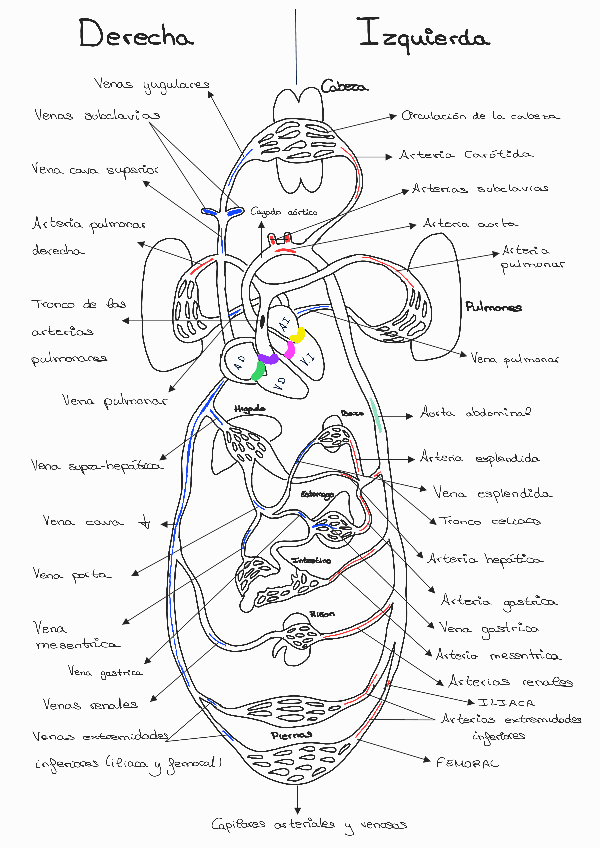 Derecha
Izquierda
Venas yugulares
Cabeza
Venas subclavias
Circulación de la cabeza
Arteria Carótida
Vena cava superior
Arterias subclavias
Cayado aórtico
Arteria pulmonar
derecha
Arteria aorta
Arteria
pulmonar
Tronco de las
arterias
pulmonares
Pulmones
AI
AD
VI
VD
Vena pulmonar
Vena pulmonar
Higado
Bazo
Aorta abdominal
Vena supra-hepática
Arteria esplendida
Vena esplendida
Estomago
Vena cava
Tronco celiaco
Arteria hepática
Intestino
Vena porta
Arteria gastrica
Riñon
Vena
mesentrica
Vena gastrica
Arteria mesentrica
Vena gastrica
Arterias renales
Venas renales
ILIACA
Arterias extremidades
inferiores
Venas extremidades
inferiores (iliaca y femoral)
Piernas
FEMORAL
Capilares arteriales y venosas